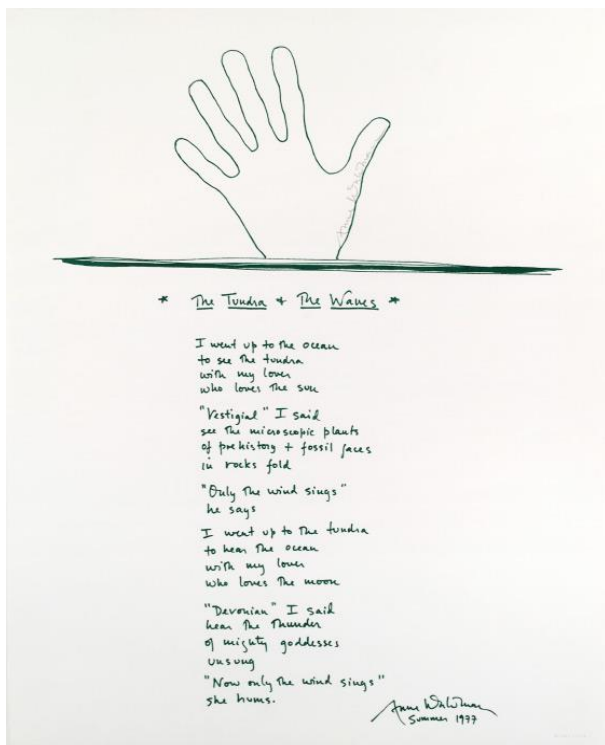 Anne Waldman
* The Tundra + The Waves *
I went up to the ocean
to see the tundra
with my lover
who loves the sun
"Vestigial" I said
see the microscopic plants
of prehistory + fossil faces
in rocks fold
"Only the wind sings"
he says
I went up to the tundra
to hear the ocean
with my lover
who loves the moon
"Devonian" I said
hear the thunder
of mighty goddesses
unsung
"Now only the wind sings"
she hums.
Anne Waldman
Summer 1977